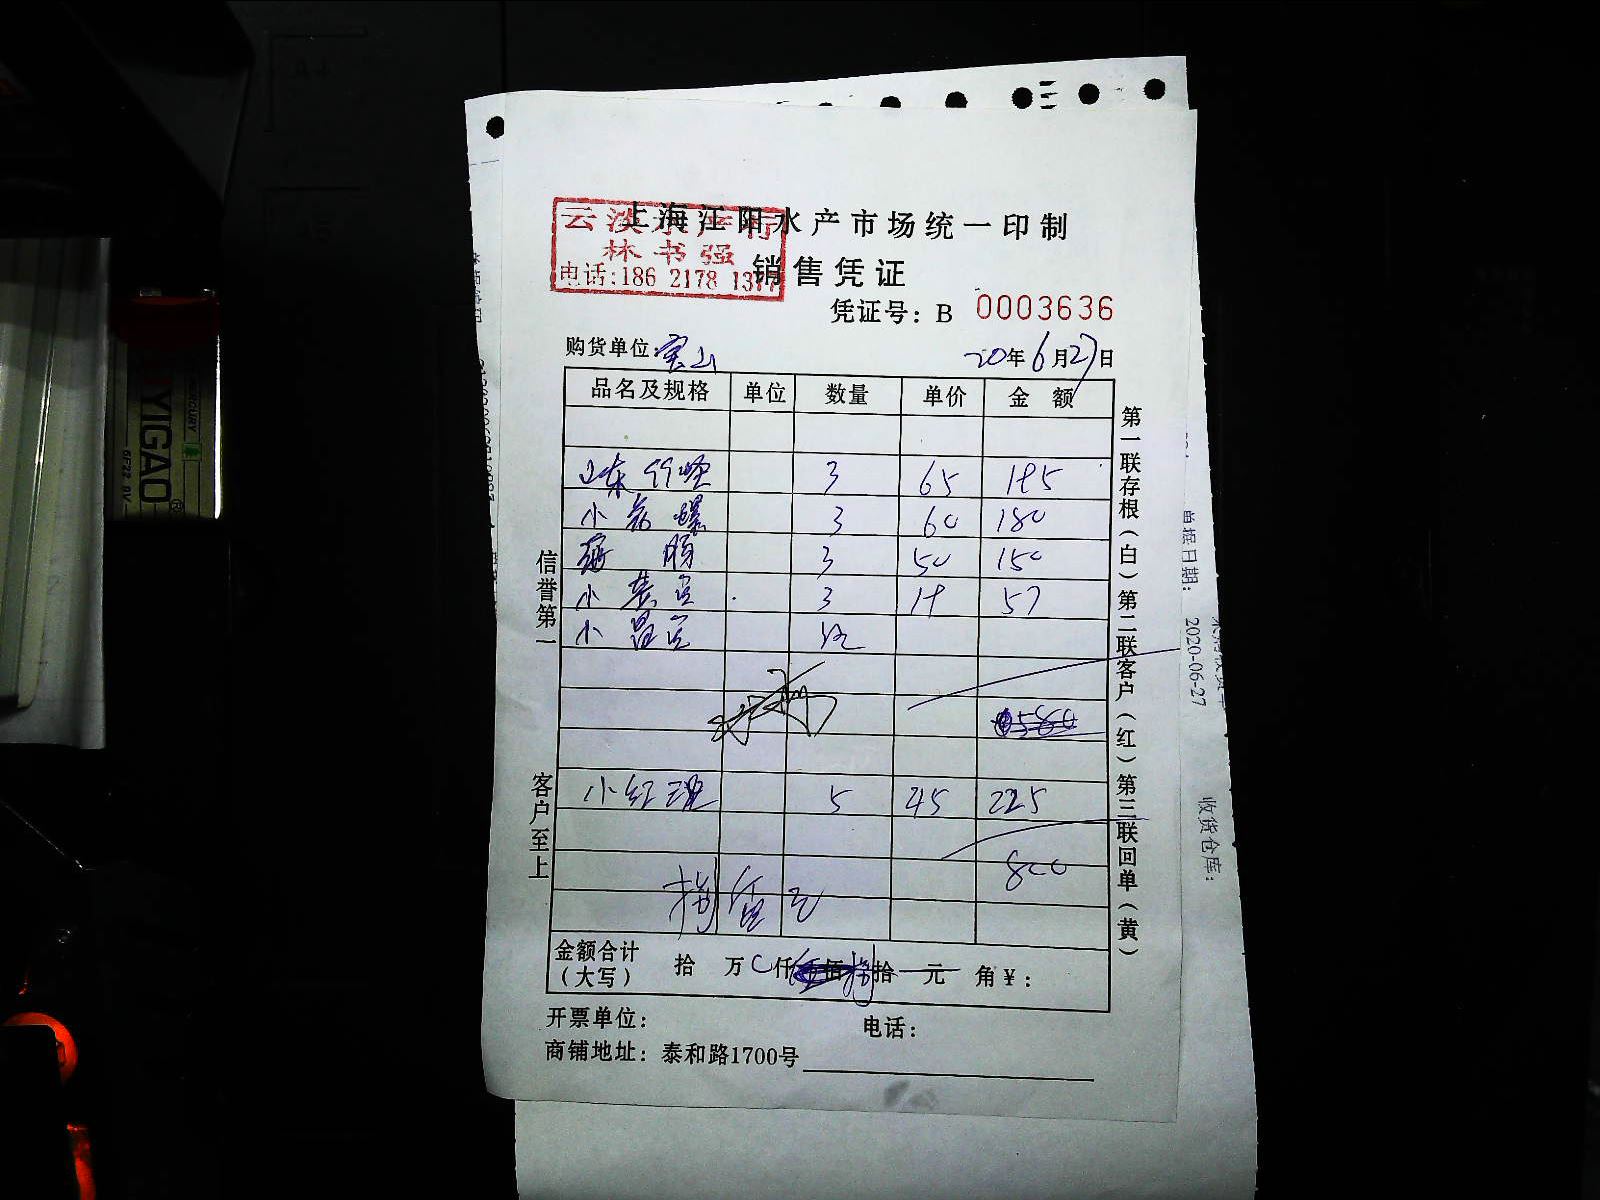 上海江阳水产市场统一印制
云淡水产行
林书强
电话:186 2178 1377
销售凭证
凭证号: B 0003636
购货单位: 宝山
20年6月27日
品名及规格 单位 数量 单价 金额
山东 3 65 195
小 螺 3 60 180
肠 3 50 150
小 3 19 57
小
580
小红 5 45 225
800
捌佰元
金额合计(大写) 拾 万 仟 佰 拾 元 角 ¥:
开票单位: 电话:
商铺地址: 泰和路1700号
信誉第一
客户至上
第一联存根(白) 第二联客户(红) 第三联回单(黄)
2020-06-27
收货仓库:
YIGAO
6F22 9V